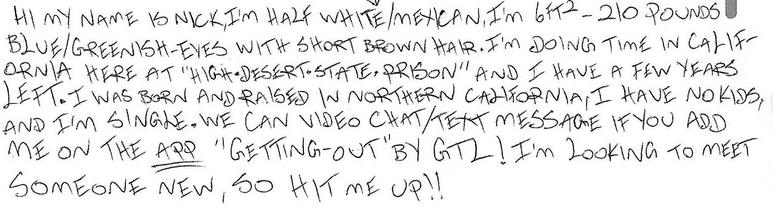 HI MY NAME IS NICK, I'M HALF WHITE/MEXICAN, I'M 6FT2 - 210 POUNDS
BLUE/GREENISH-EYES WITH SHORT BROWN HAIR. I'M DOING TIME IN CALIF-
ORNIA HERE AT "HIGH-DESERT-STATE-PRISON" AND I HAVE A FEW YEARS
LEFT. I WAS BORN AND RAISED IN NORTHERN CALIFORNIA, I HAVE NO KIDS,
AND I'M SINGLE. WE CAN VIDEO CHAT/TEXT MESSAGE IF YOU ADD
ME ON THE APP "GETTING-OUT" BY GTL! I'M LOOKING TO MEET
SOMEONE NEW, SO HIT ME UP!!